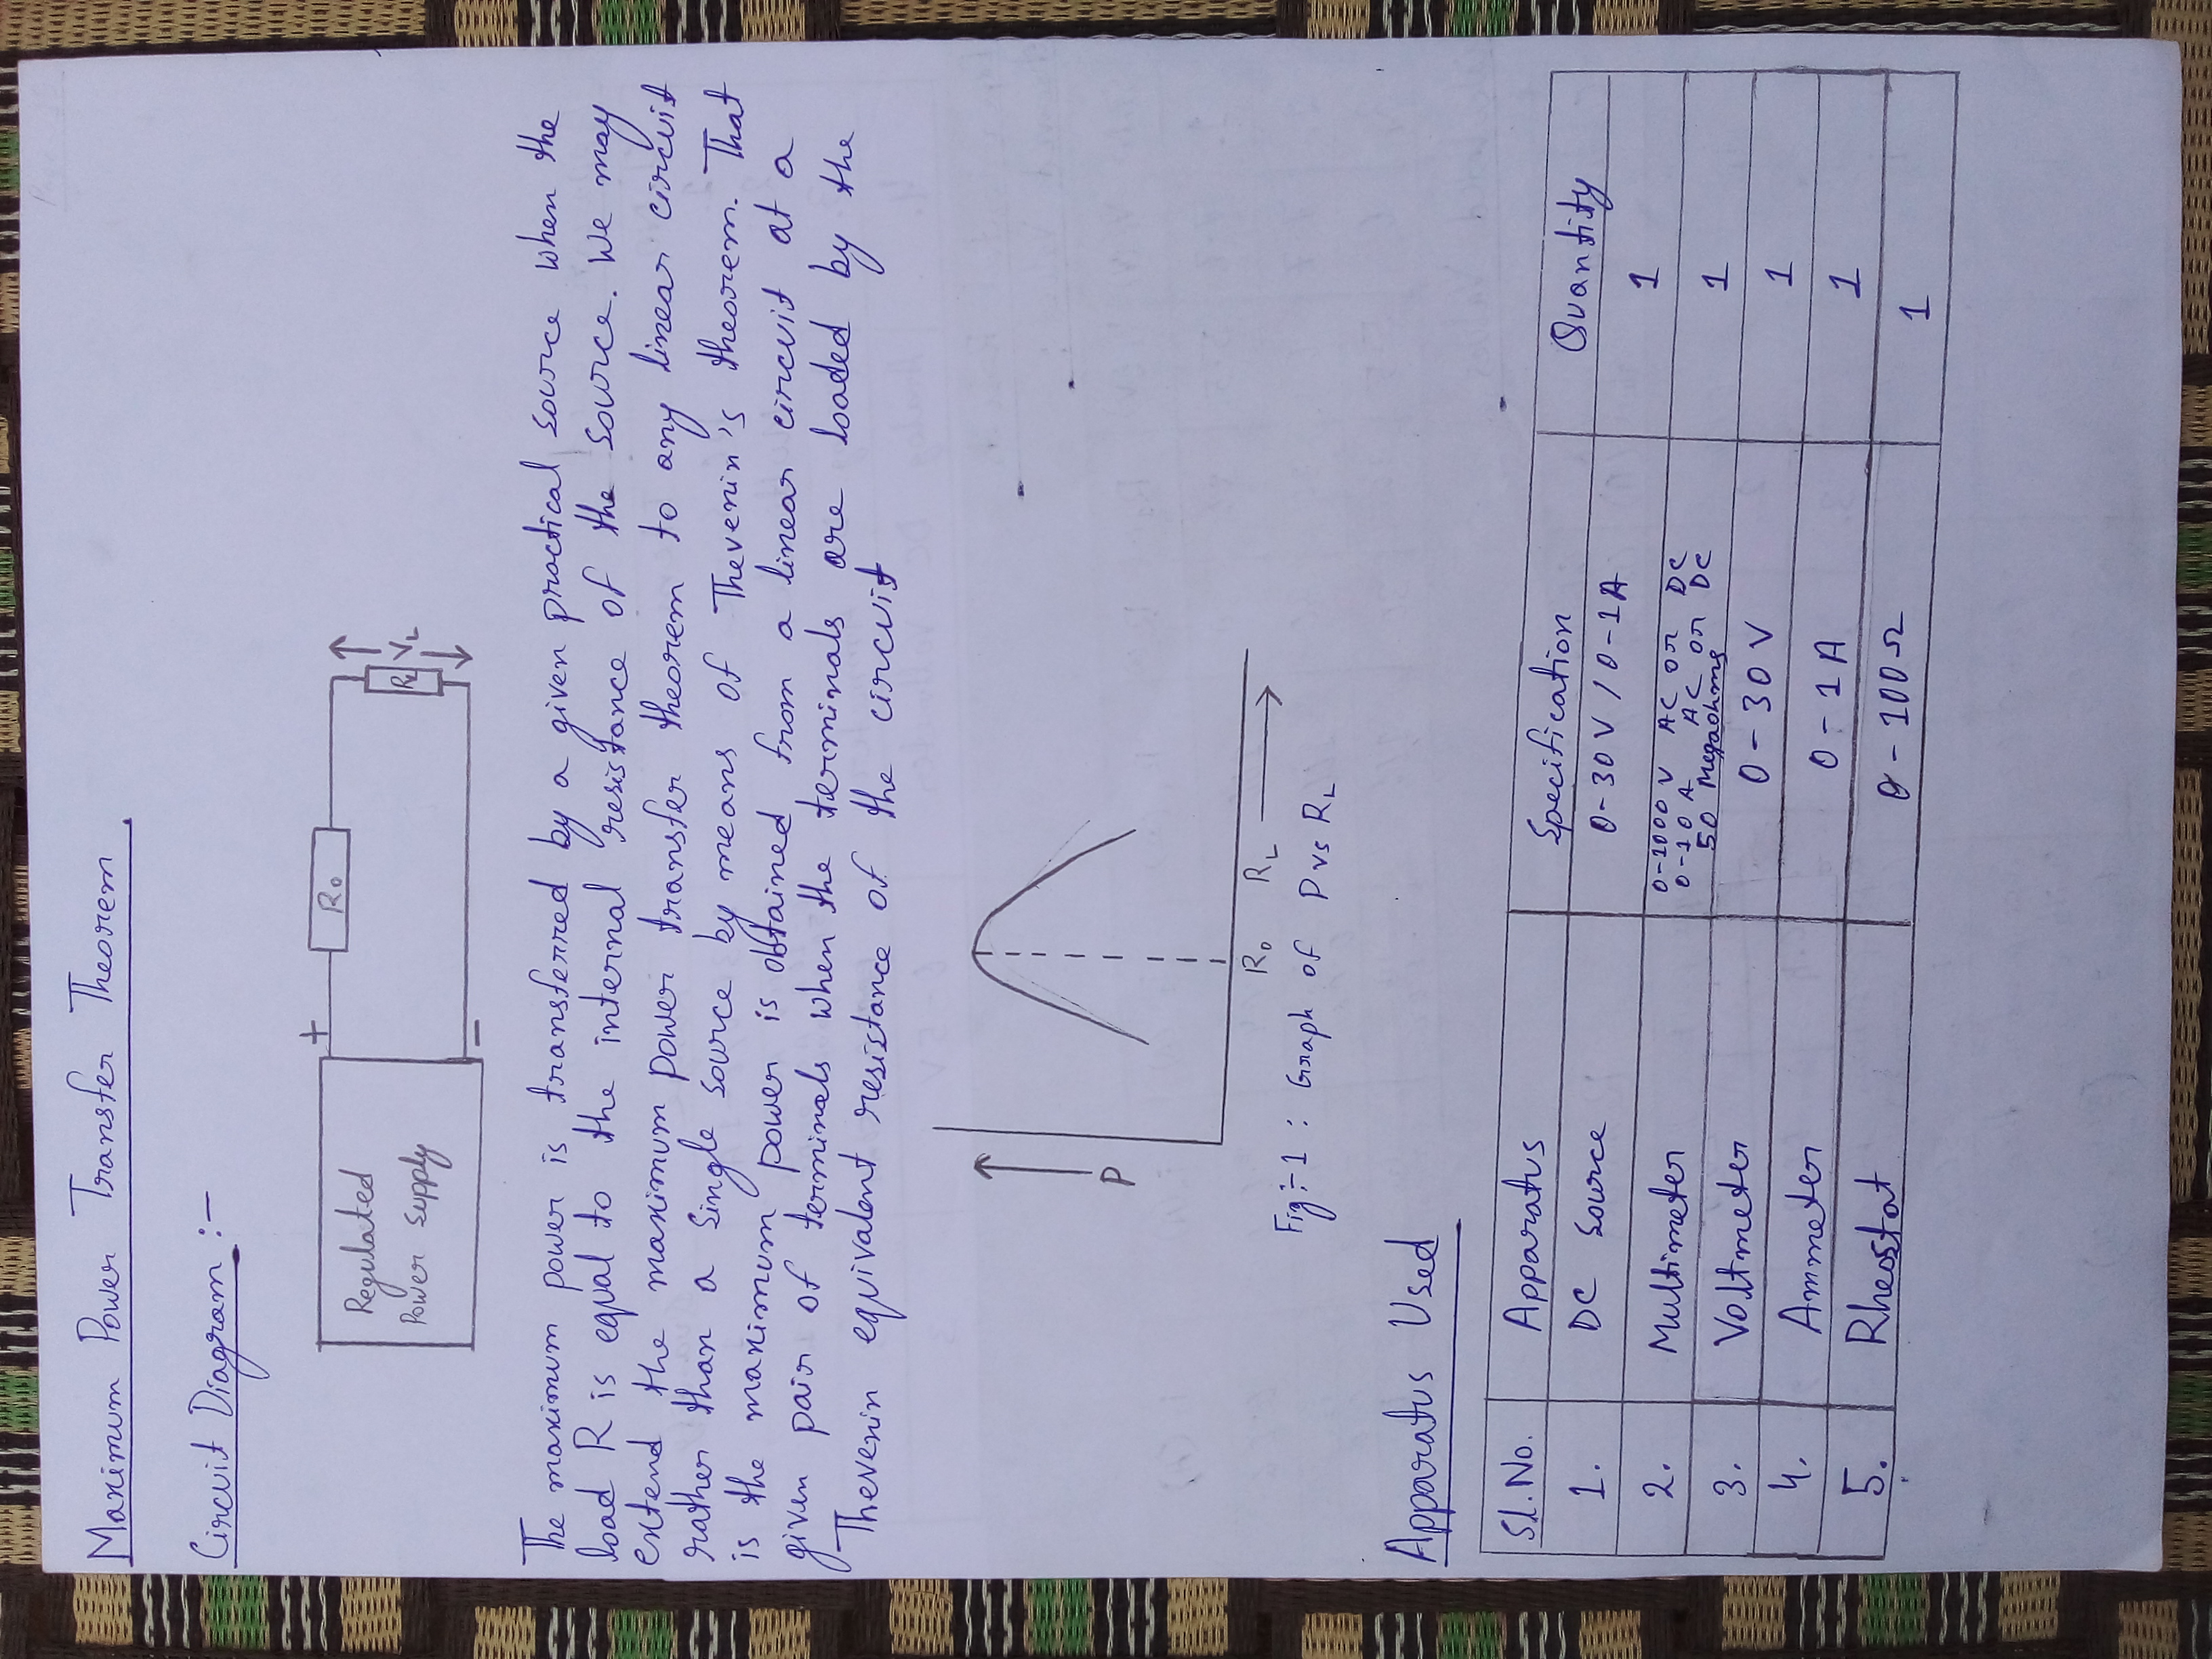 Maximum Power Transfer Theorem.
Circuit Diagram :-
+
R₀
Regulated
Power Supply
RL
VL
−
The maximum power is transferred by a given practical source when the
load R is equal to the internal resistance of the source. We may
extend the maximum power transfer theorem to any linear circuit
rather than a single source by means of Thevenin's theorem. That
is the maximum power is obtained from a linear circuit at a
given pair of terminals when the terminals are loaded by the
Thevenin equivalent resistance of the circuit
P
R₀ RL
Fig:-1 : Graph of P vs RL
Apparatus Used
Sl. No. Apparatus Specification Quantity
1. DC Source 0-30 V / 0-1 A 1
2. Multimeter 0-1000 V AC or DC
0-10 A AC or DC
50 Megaohms 1
3. Voltmeter 0-30 V 1
4. Ammeter 0-1 A 1
5. Rheostat 0-100 Ω 1